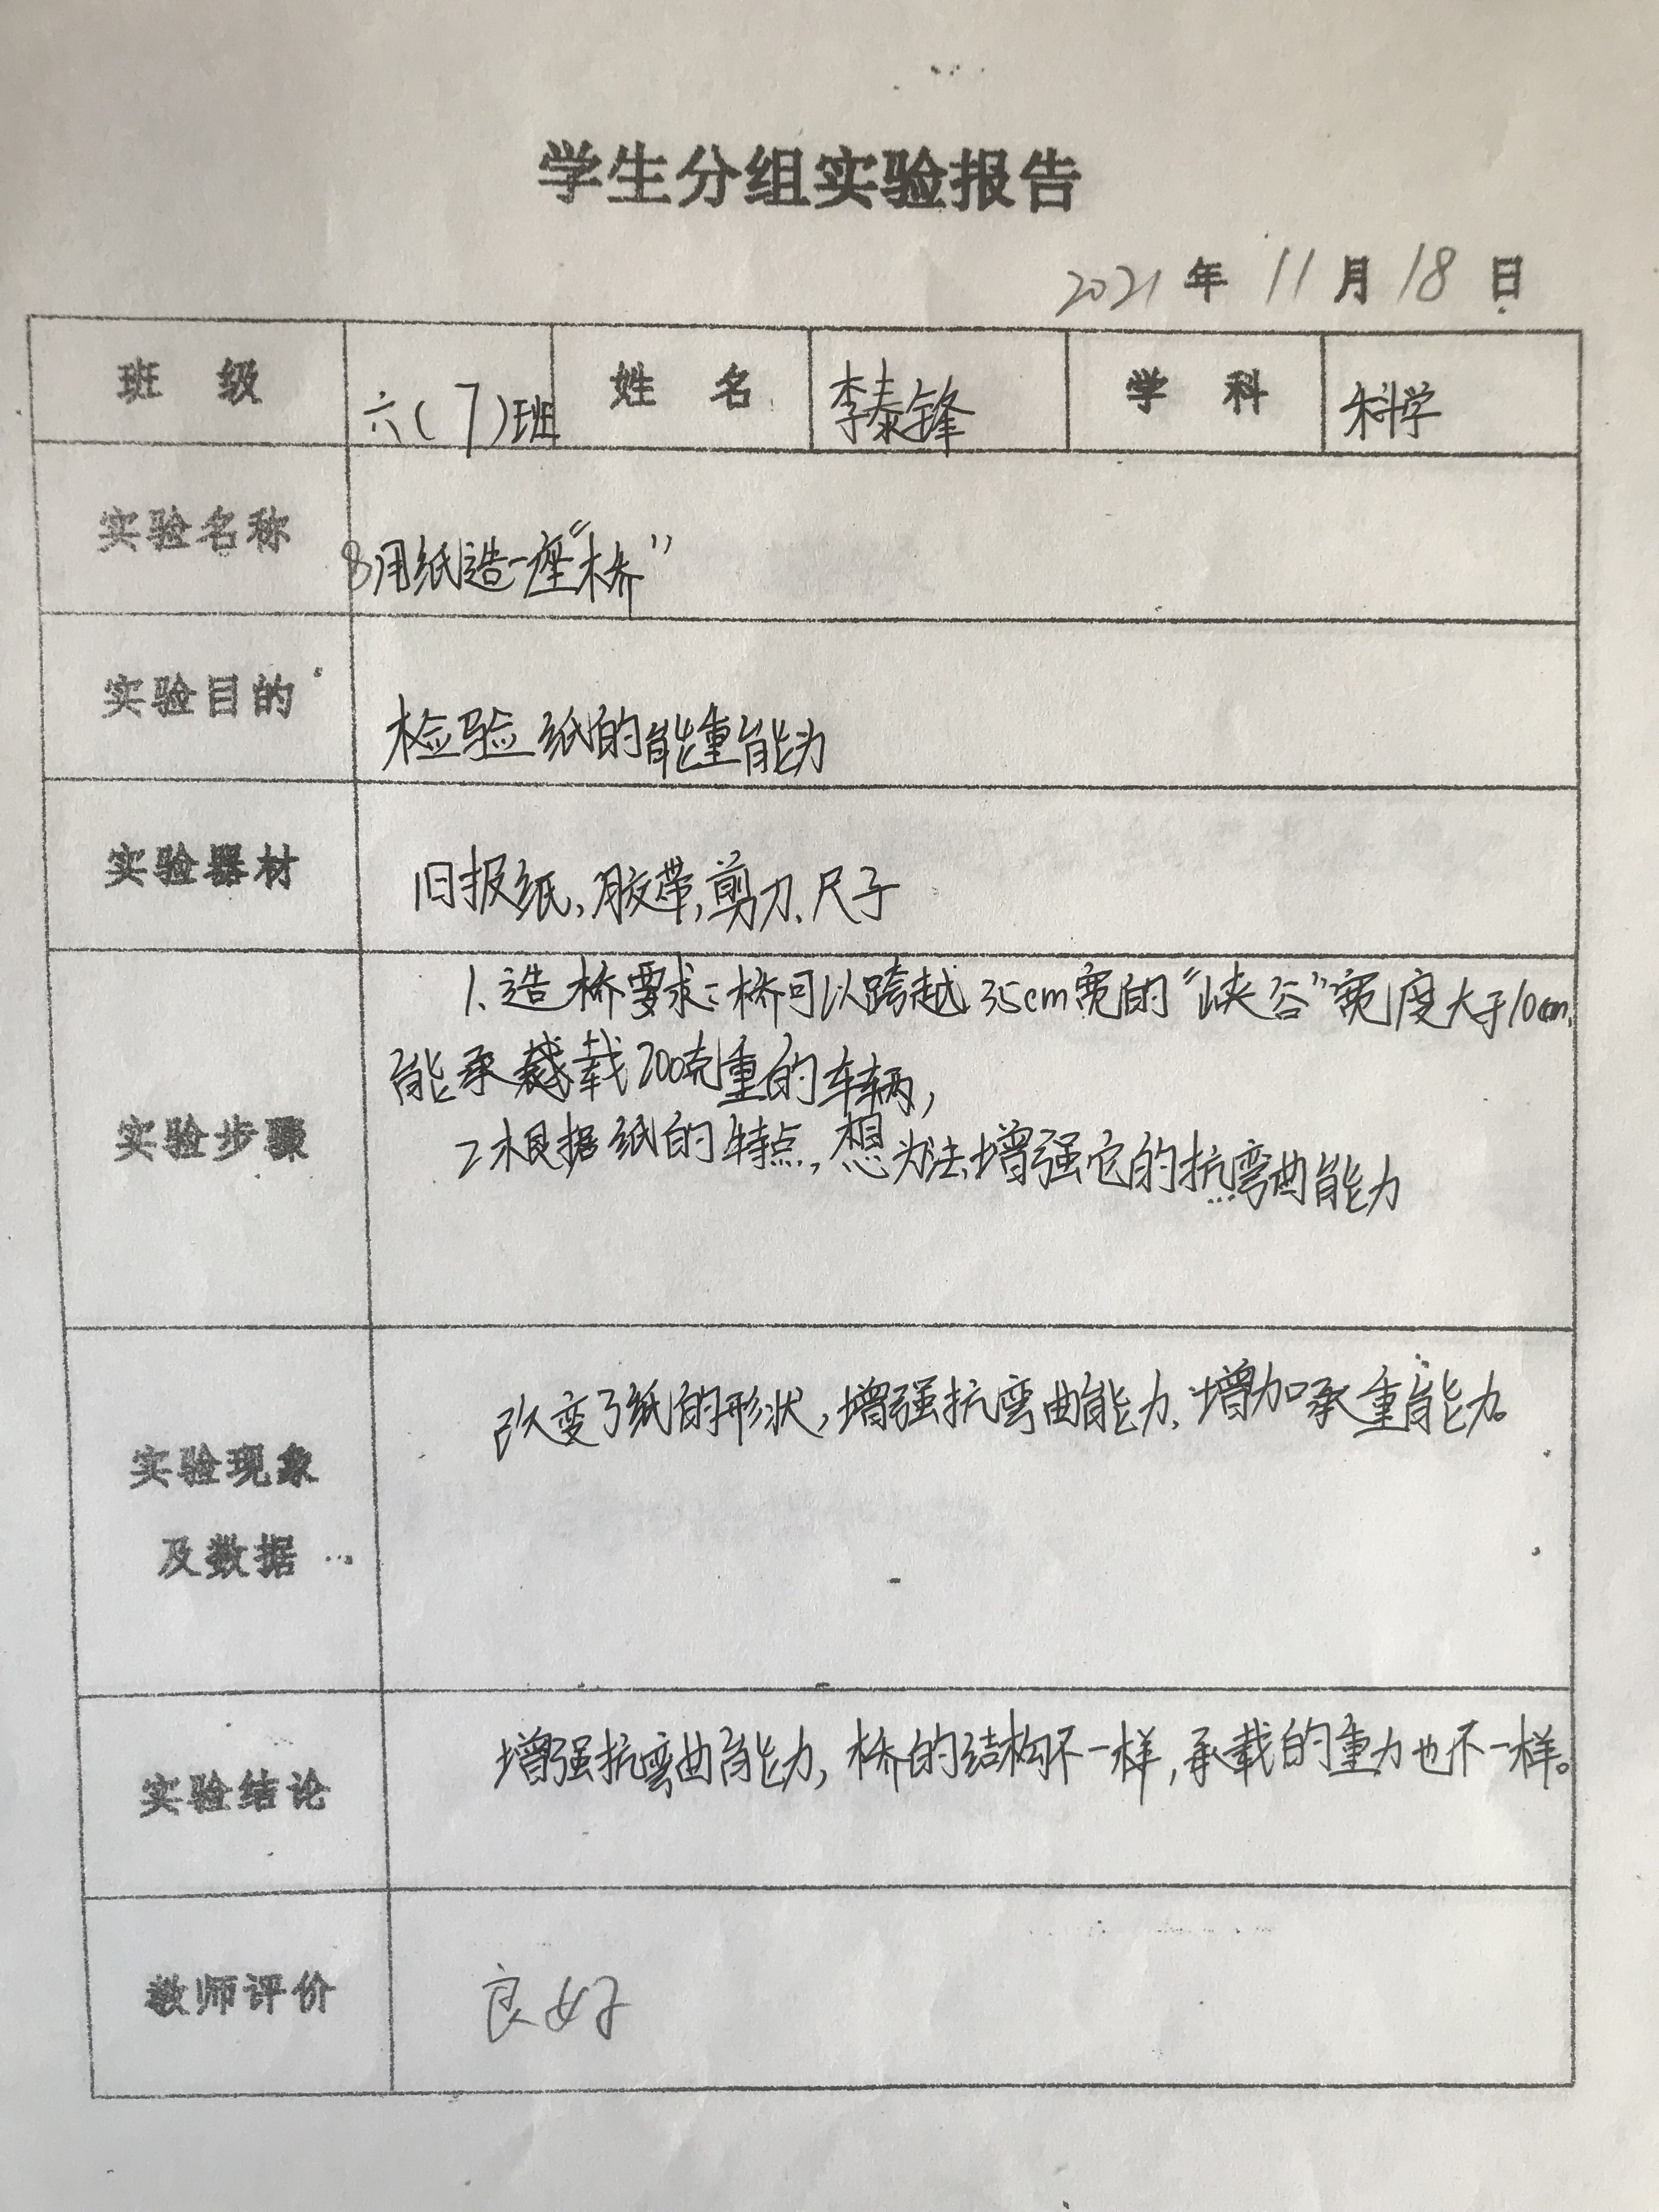 学生分组实验报告
2021年11月18日
班级 六(7)班 姓名 李泰锋 学科 科学
实验名称 8用纸造一座“桥”
实验目的 检验纸的能重能力
实验器材 旧报纸,胶带,剪刀、尺子
1、造桥要求:桥可以跨越35cm宽的“峡谷”宽度大于10cm,
能承载200克重的车辆,
实验步骤
2根据纸的特点,想办法增强它的抗弯曲能力
改变了纸的形状,增强抗弯曲能力,增加承重能力。
实验现象
及数据
实验结论 增强抗弯曲能力,桥的结构不一样,承载的重力也不一样。
教师评价 良好